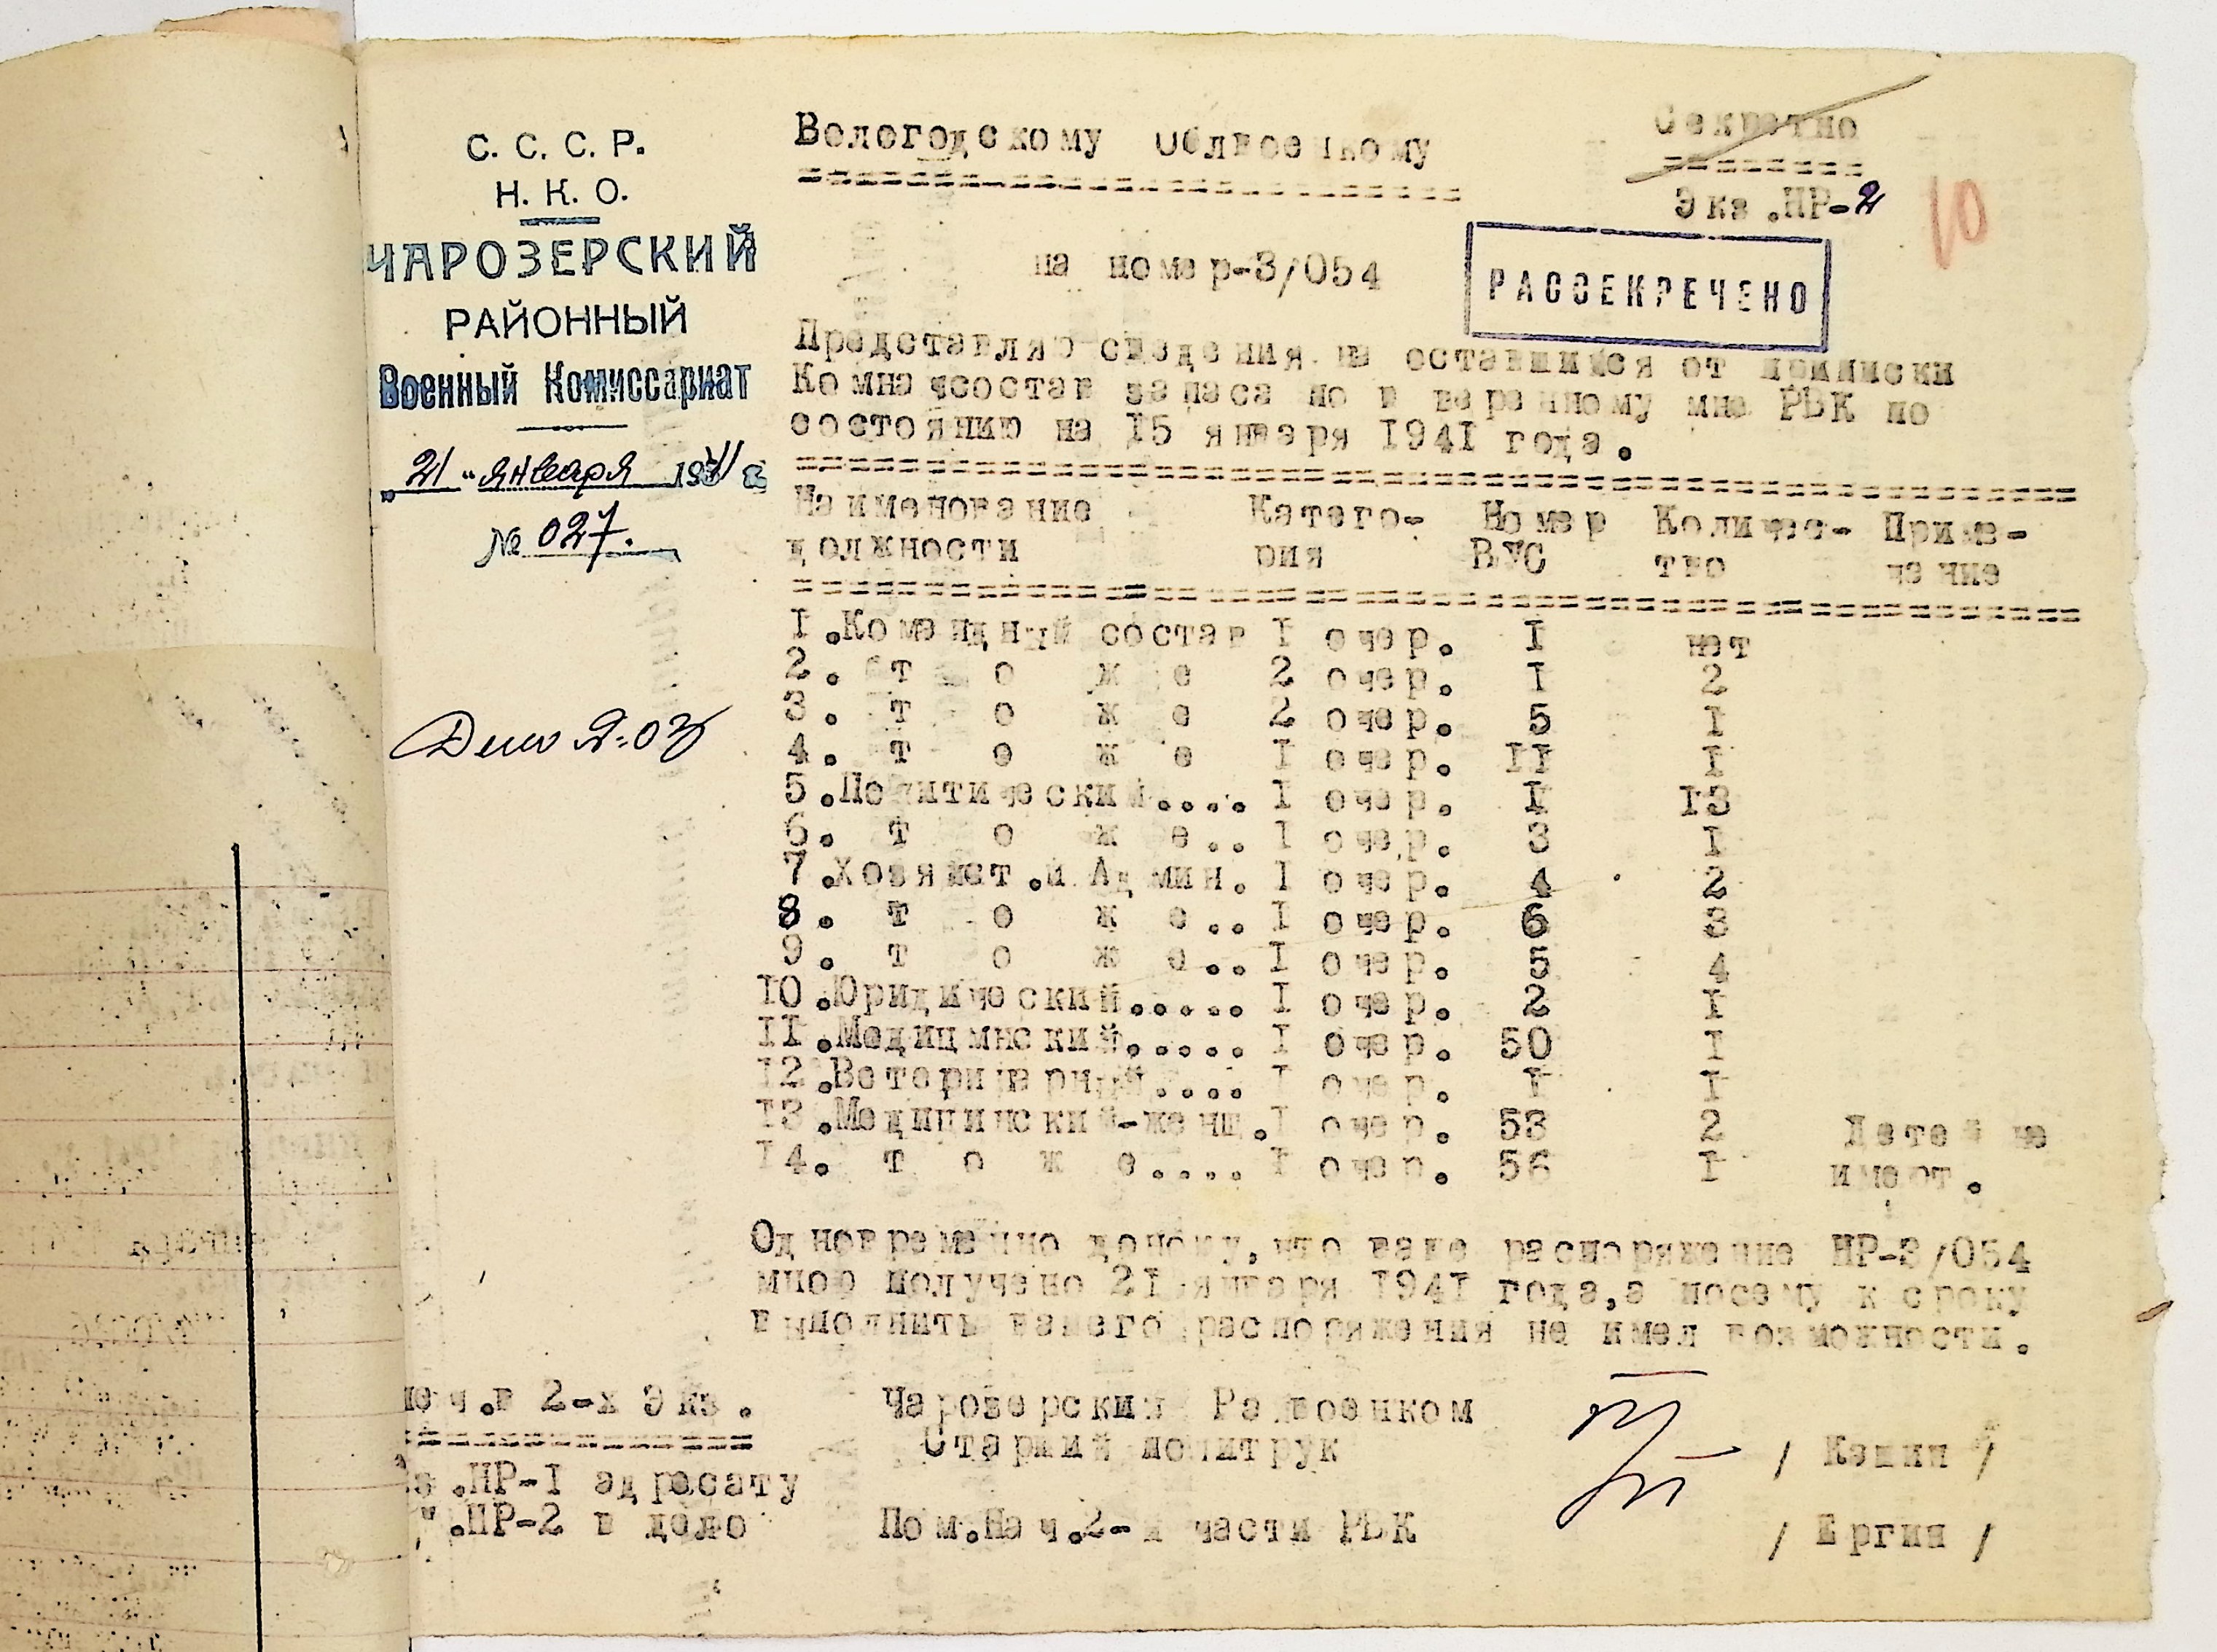 С. С. С. Р.
Н. К. О.
ЧАРОЗЕРСКИЙ
РАЙОННЫЙ
Военный Комиссариат
„21" января 1941 г.
№ 027.
Дело Я-03
Вологодскому Облвоенкому
Секретно
Экз.НР-2
10
на номер-3/054
РАССЕКРЕЧЕНО
Представляю сведения на оставшихся от приписки
Комначсостав запаса по в веренному мне РВК по
состоянию на 15 января 1941 года.
Наименование Катего- Номер Количес- Приме-
должности рия ВУС тво чание
I.Командный состав I очер. I нет
2. т о ж е 2 очер. I 2
3. т о ж е 2 очер. 5 I
4. т о ж е I очер. II I
5.Политический.... I очер. I I3
6. т о ж е.. I очер. 3 I
7.Хозяйст.и Админ. I очер. 4 2
8. т о ж е.. I очер. 6 3
9. т о ж е.. I очер. 5 4
I0.Юридический..... I очер. 2 I
II.Медицинский..... I очер. 50 I
I2.Ветеринарный.... I очер. I I
I3.Медицинский-женщ.I очер. 53 2 Детей не
I4. т о ж е.... I очер. 56 I имеют.
Одновременно доношу,что ваше распоряжение НР-3/054
мною получено 2I января I94I года,а посему к сроку
выполнить вашего распоряжения не имел возможности.
Чарозерский Райвоенком
Старший политрук / Кашин /
Пом.Нач.2-й части РВК / Ергин /
еч.в 2-х Экз.
з.НР-I адресату
".НР-2 в дело